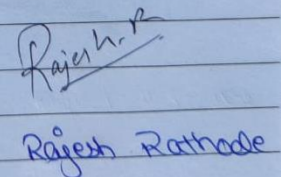 Rajesh.R
Rajesh Rathode